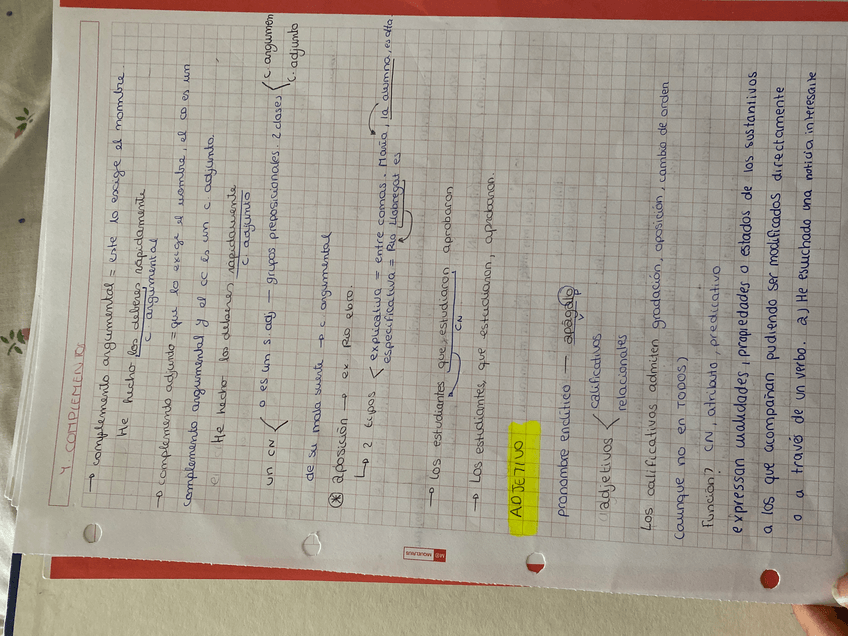 Y COMPLEMENTO
→ complemento argumental = este lo exige el nombre.
He hecho los deberes rápidamente
c argumental
→ complemento adjunto = que lo exige el nombre, el cd es un
complemento argumental y el cc es un c. adjunto.
He hecho los deberes rápidamente
c. adjunto
un CN < o es un s. adj — grupos preposicionales. 2 clases < c. argumen
c. adjunto
de su mala suerte → c. argumental
* aposición → ex Rio ebro.
↳ 2 tipos < explicativa = entre comas. María, la alumna, es alta
especificativa = Rio Llobregat es
→ Los estudiantes que estudiaron aprobaron
CN
→ Los estudiantes, que estudiaron, aprobaron.
ADJETIVO
pronombre enclítico — apágalo
V P
adjetivos < calificativos
relacionales
Los calificativos admiten gradación, aposición, cambio de orden
(aunque no en TODOS)
Función? CN, atributo, predicativo
expressan cualidades, propiedades o estados de los sustantivos
a los que acompañan pudiendo ser modificados directamente
o a través de un verbo. 2) He escuchado una noticia interesante
MIQUELRIUS